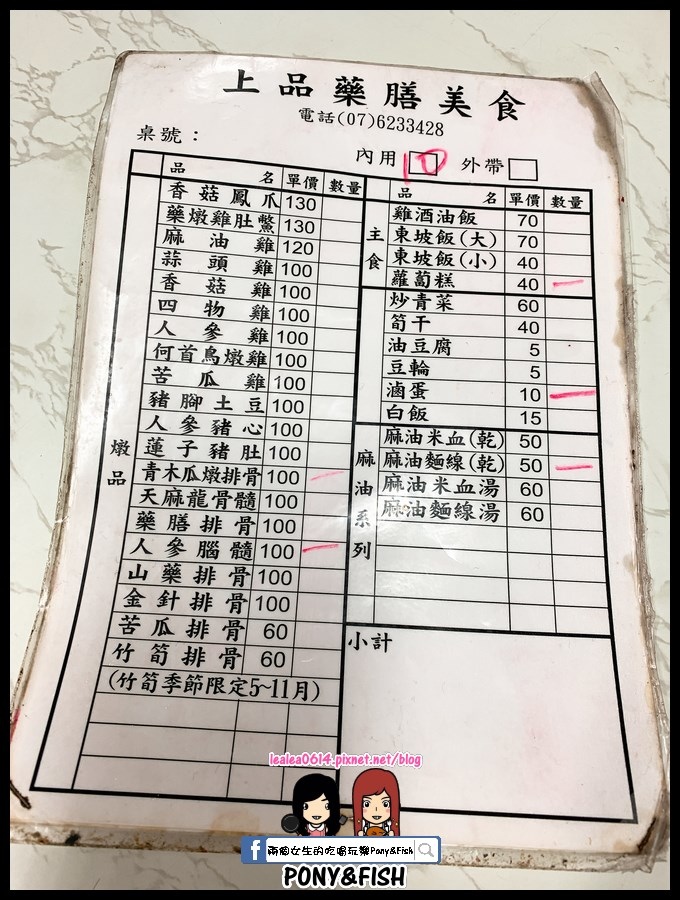 上品藥膳美食
電話(07)6233428
桌號：
內用 10 外帶
品名 單價 數量
燉品
香菇鳳爪 130
藥燉雞肚鱉 130
麻油雞 120
蒜頭雞 100
香菇雞 100
四物雞 100
人參雞 100
何首烏燉雞 100
苦瓜雞 100
豬腳土豆 100
人參豬心 100
蓮子豬肚 100
青木瓜燉排骨 100
天麻龍骨髓 100
藥膳排骨 100
人參腦髓 100
山藥排骨 100
金針排骨 100
苦瓜排骨 60
竹筍排骨 60
(竹筍季節限定5~11月)
品名 單價 數量
主食
雞酒油飯 70
東坡飯(大) 70
東坡飯(小) 40
蘿蔔糕 40
炒青菜 60
筍干 40
油豆腐 5
豆輪 5
滷蛋 10
白飯 15
麻油系列
麻油米血(乾) 50
麻油麵線(乾) 50
麻油米血湯 60
麻油麵線湯 60
小計
lealea0614.pixnet.net/blog
兩個女生的吃喝玩樂Pony&Fish
PONY&FISH